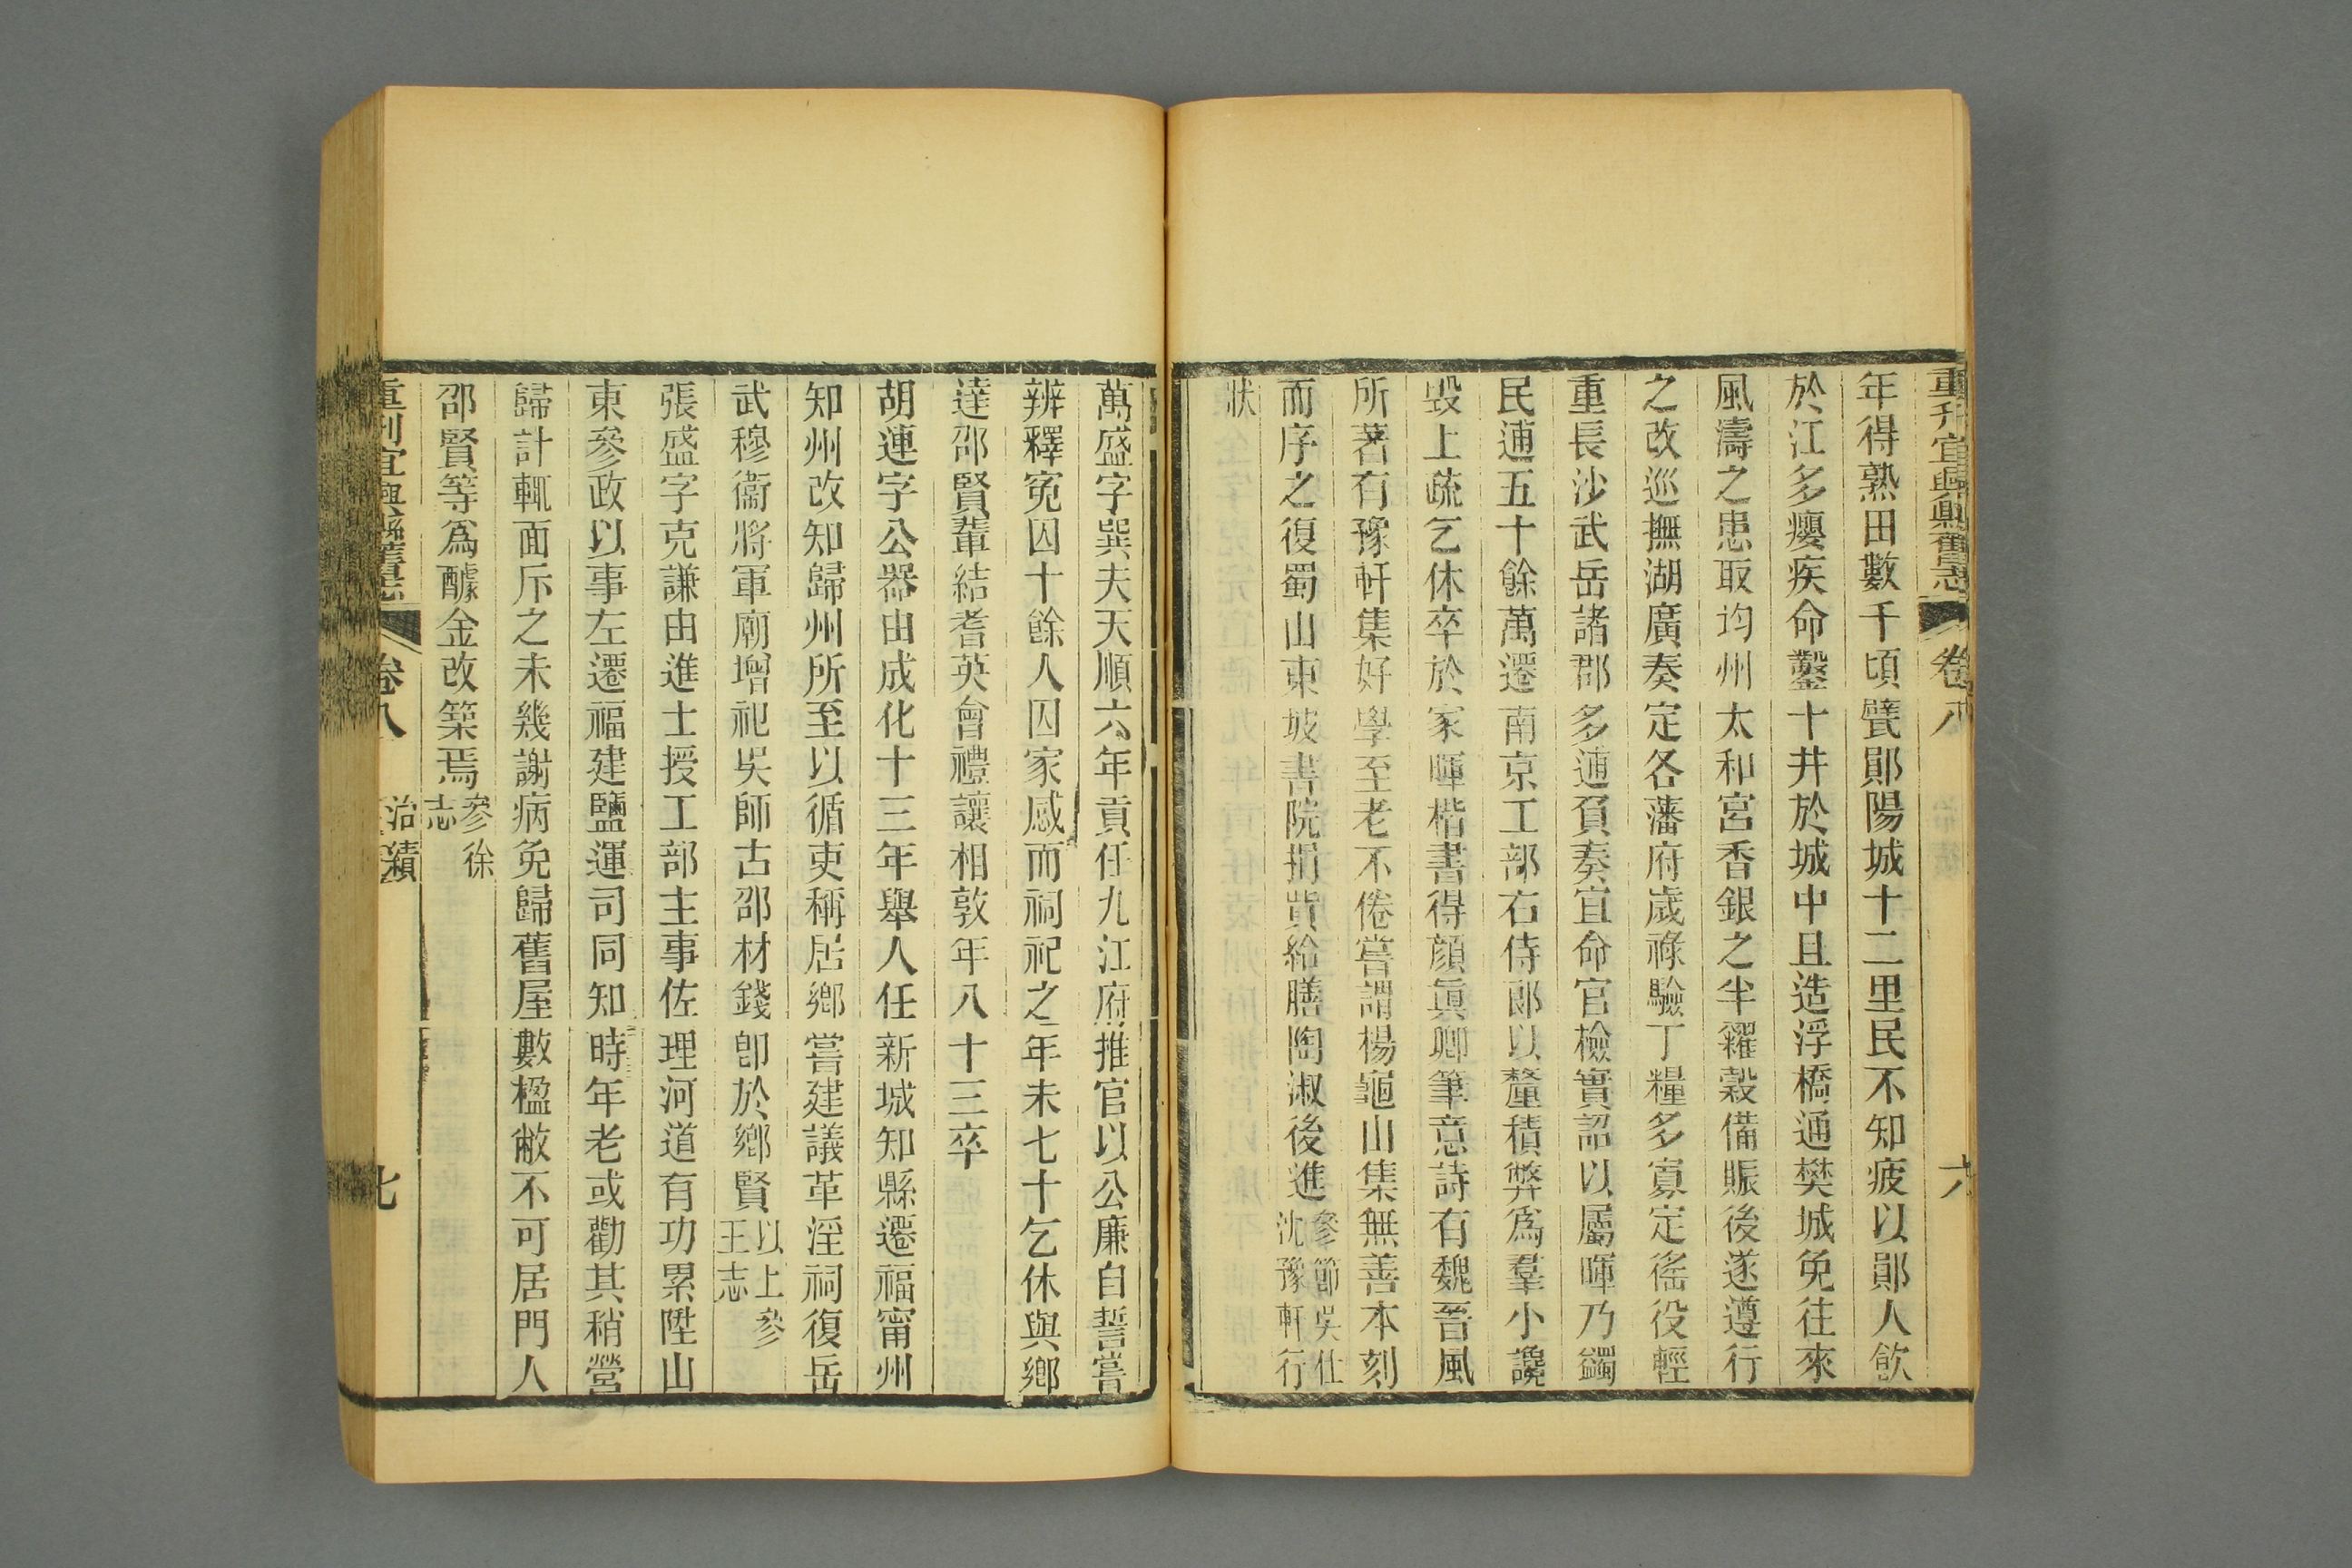 重刊宜興縣舊志 卷八 六
年得熟田數千頃甓鄖陽城十二里民不知疲以鄖人飲
於江多癭疾命鑿十井於城中且造浮橋通樊城免往來
風濤之患取均州太和宮香銀之半糴穀備賑後遂遵行
之改巡撫湖廣奏定各藩府歲祿驗丁糧多寡定徭役輕
重長沙武岳諸郡多逋負奏宜命官檢實詔以屬暉乃蠲
民逋五十餘萬遷南京工部右侍郎以釐積弊爲羣小讒
毀上疏乞休卒於家暉楷書得顏眞卿筆意詩有魏晉風
所著有豫軒集好學至老不倦嘗謂楊龜山集無善本刻
而序之復蜀山東坡書院捐貲給膳陶淑後進參節吳仕沈豫軒行
狀
萬盛字巽夫天順六年貢任九江府推官以公廉自誓嘗
辨釋冤囚十餘人囚家感而祠祀之年未七十乞休與鄉
達邵賢輩結耆英會禮讓相敦年八十三卒
胡連字公器由成化十三年舉人任新城知縣遷福甯州
知州改知歸州所至以循吏稱居鄉嘗建議革淫祠復岳
武穆衞將軍廟增祀吳師古邵材錢卽於鄉賢以上參王志
張盛字克謙由進士授工部主事佐理河道有功累陞山
東參政以事左遷福建鹽運司同知時年老或勸其稍營
歸計輒面斥之未幾謝病免歸舊屋數楹敝不可居門人
邵賢等爲醵金改築焉參徐志
重刊宜興縣舊志 卷八 治績 七